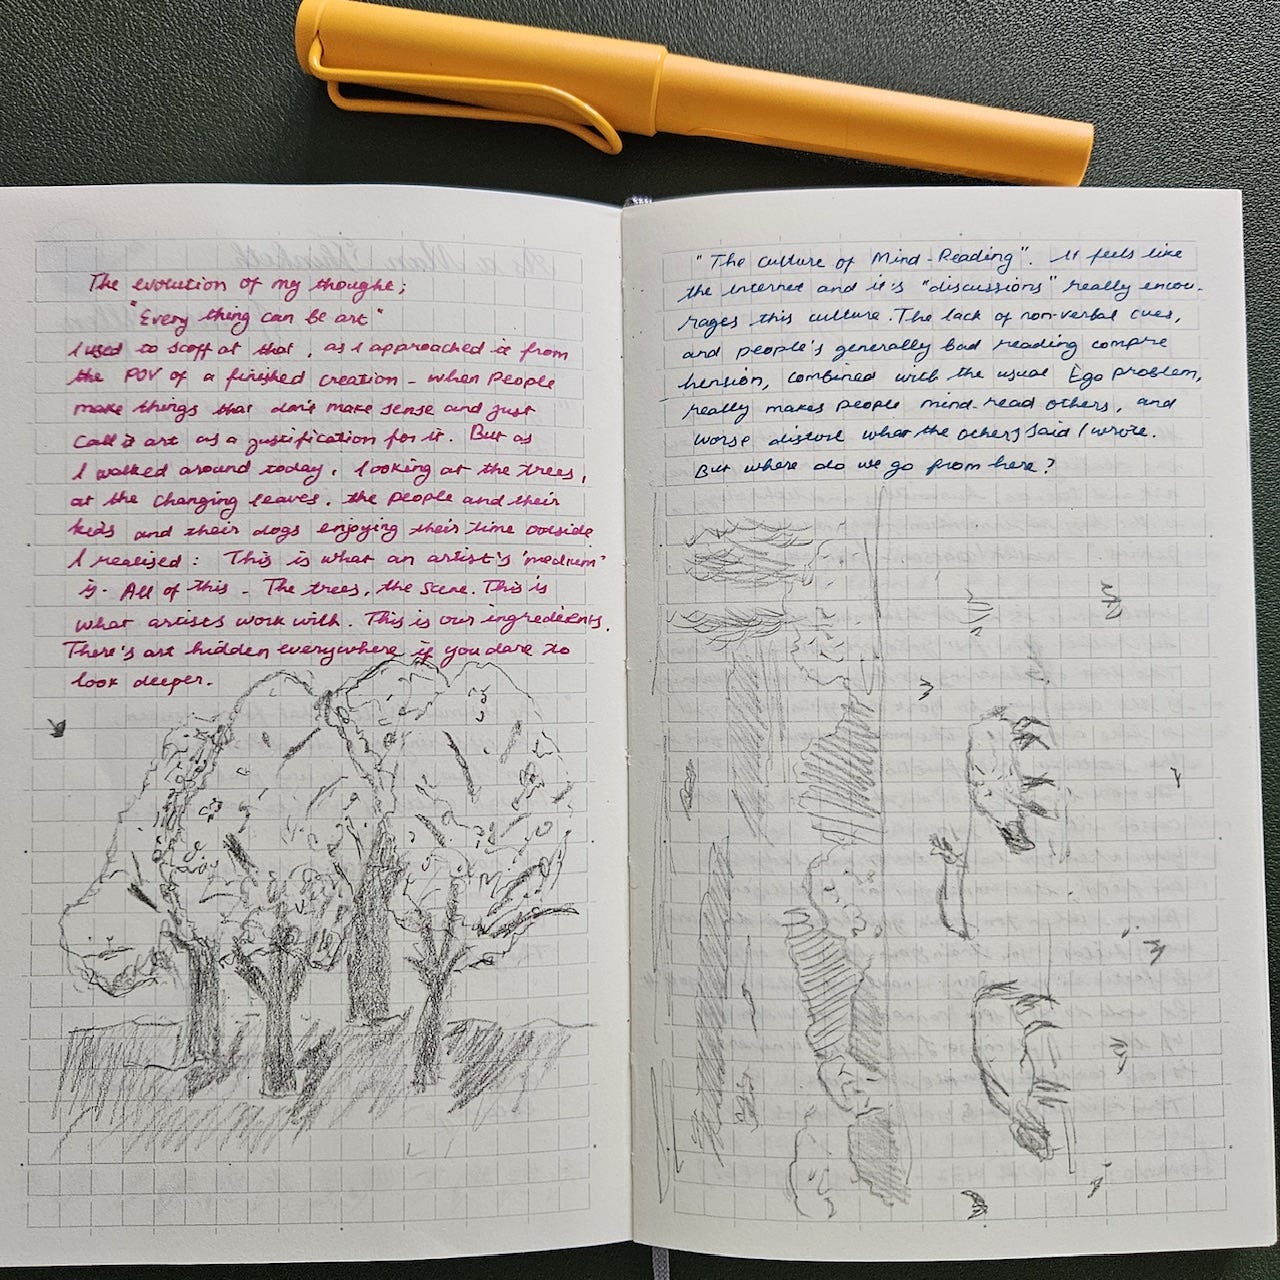 The evolution of my thought;
"Every thing can be art"
I used to scoff at that, as I approached it from
the POV of a finished creation - when people
make things that don't make sense and just
call it art as a justification for it. But as
I walked around today, looking at the trees,
at the changing leaves, the people and their
kids and their dogs enjoying their time outside
I realised: This is what an artist's 'medium'
is. All of this - The trees, the scene. This is
what artists work with. This is our ingredients.
There's art hidden everywhere if you dare to
look deeper.
"The culture of Mind-Reading". It feels like
the internet and it's "discussions" really encou-
rages this culture. The lack of non-verbal cues,
and people's generally bad reading compre
hension, combined with the usual Ego problem,
really makes people mind-read others, and
worse distort what the others said / wrote.
But where do we go from here?